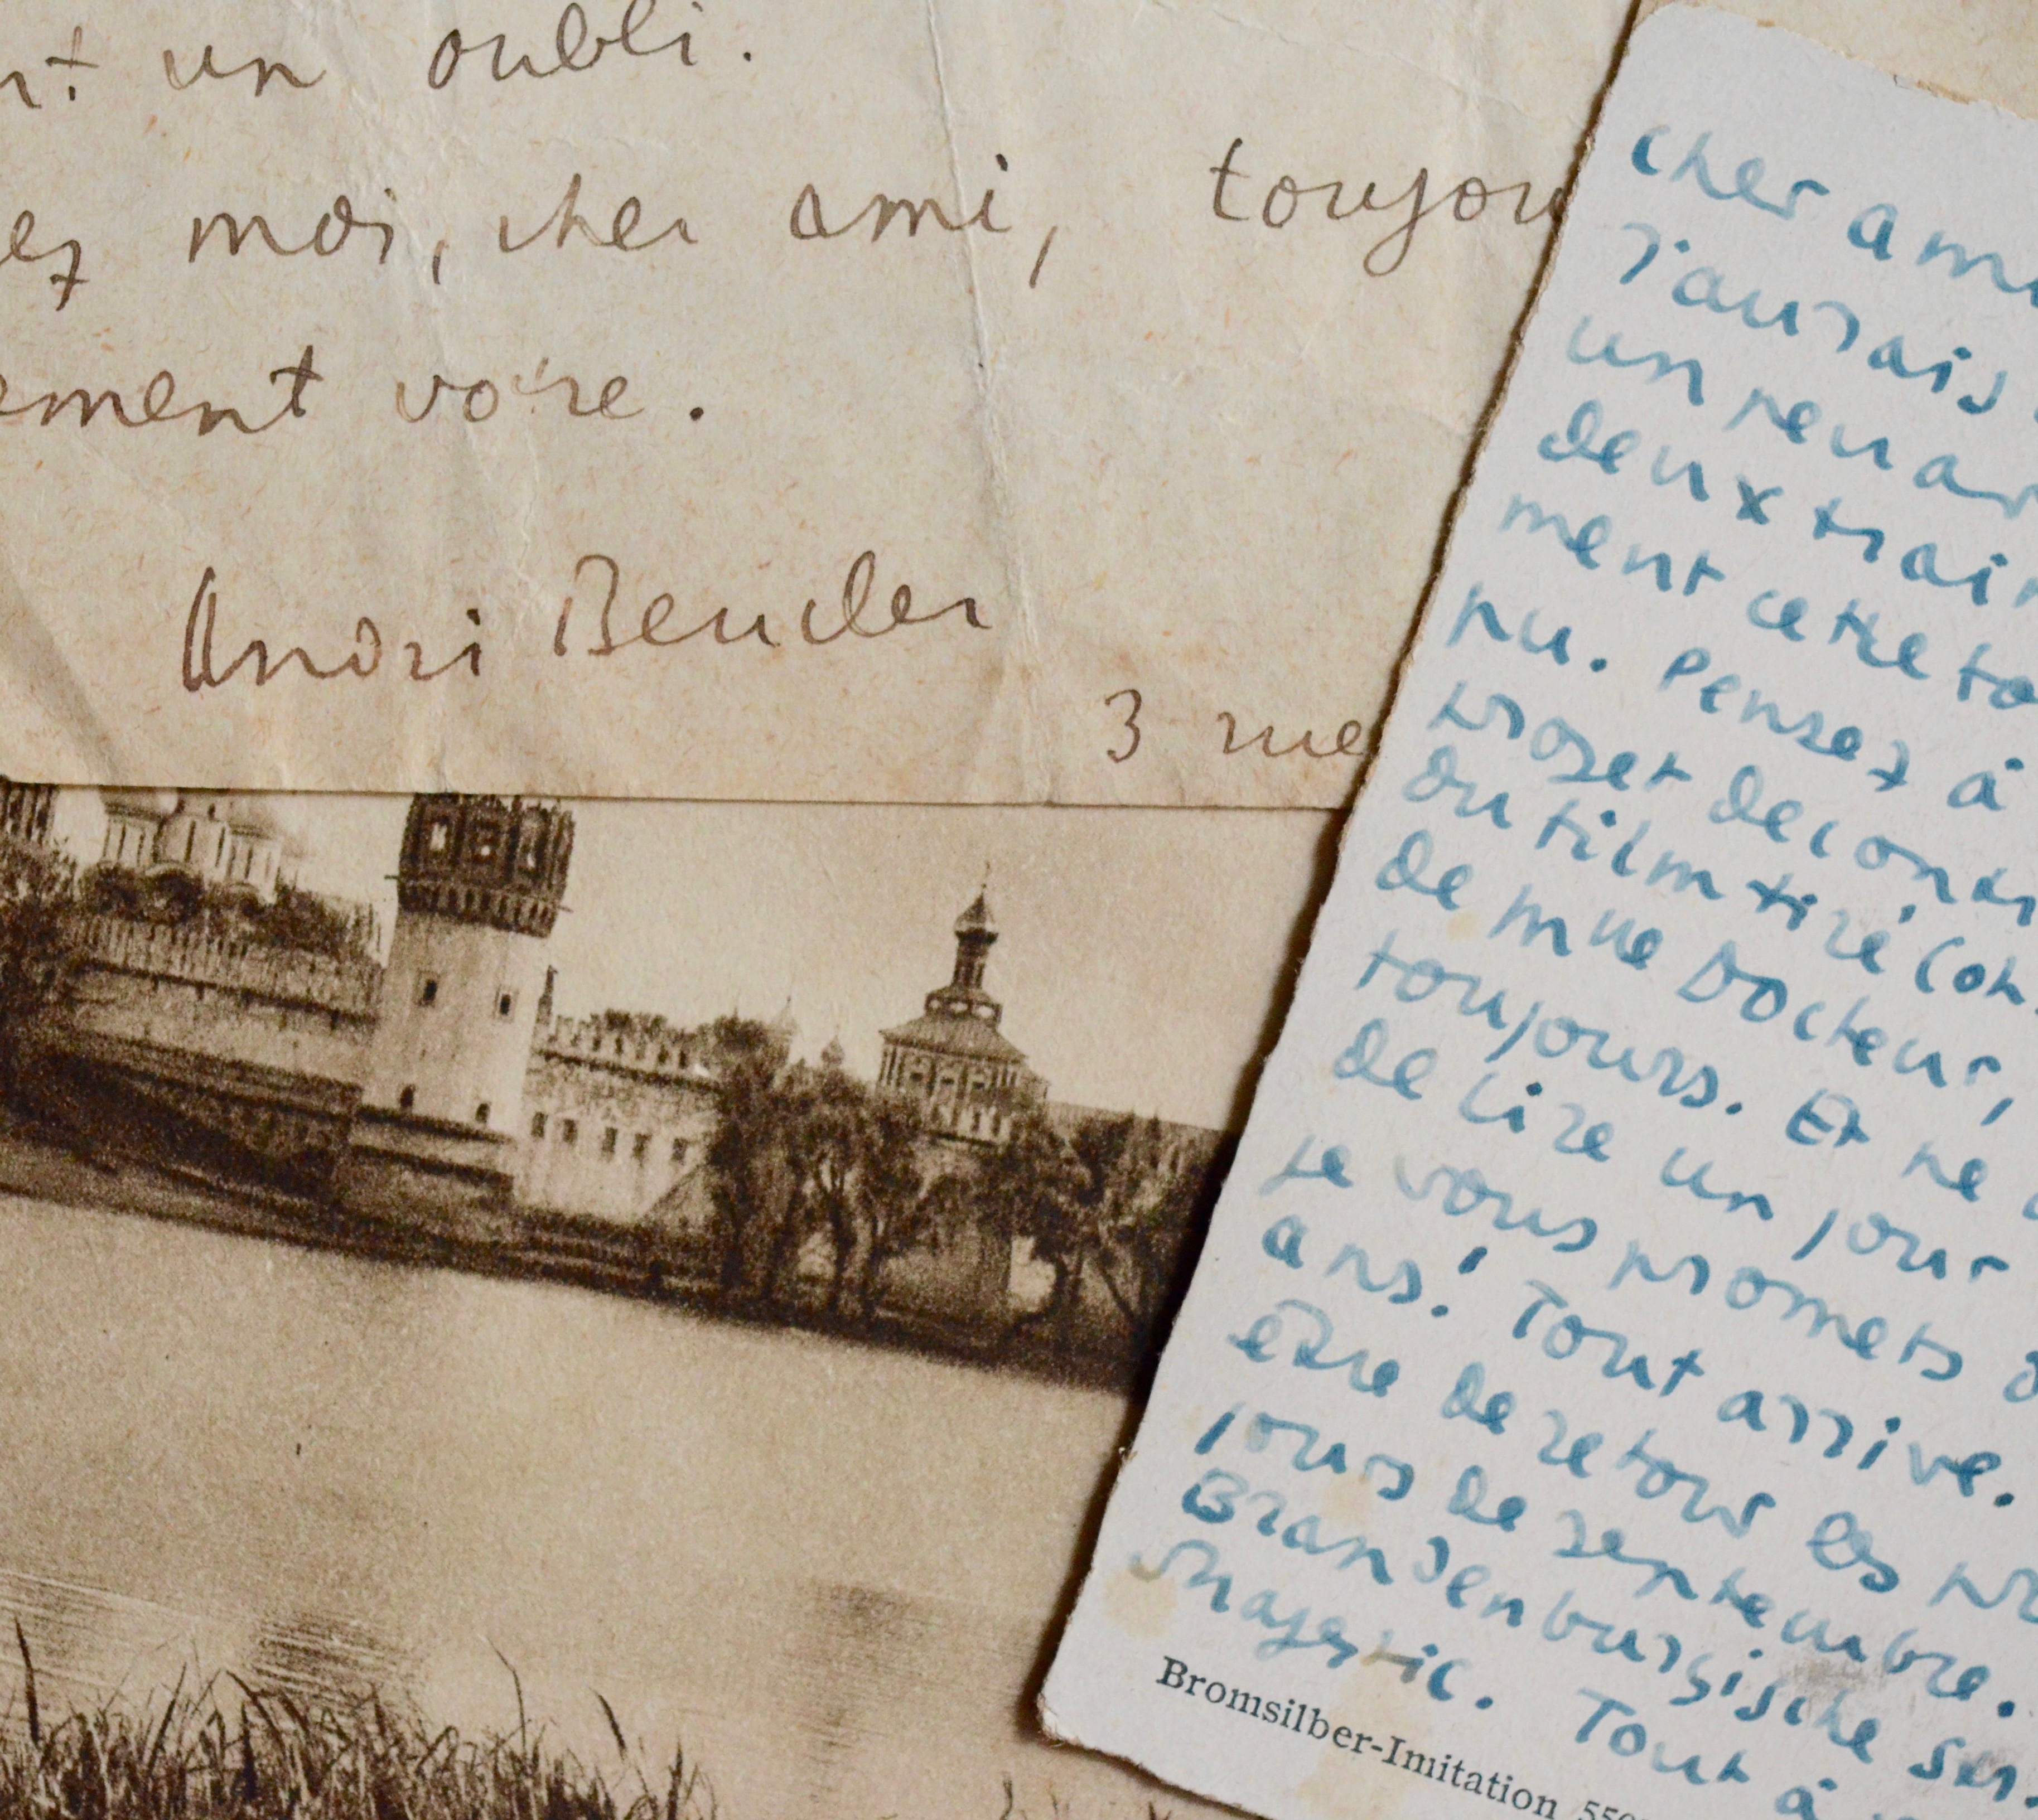 un oubli.
ez moi, cher ami, toujou
ement votre.
André Beucler
3 rue
cher ami
j'aurais
un peu a
deux trai
ment cette
pu. Pensez à
projet de cont
du film tiré
de Mlle Docteur,
toujours. Et ne
de lire un jour
je vous promets
ans! Tout arrive.
être de retour les pr
jours de septembre.
Brandenburgische
Majestic. Tout à
Bromsilber-Imitation